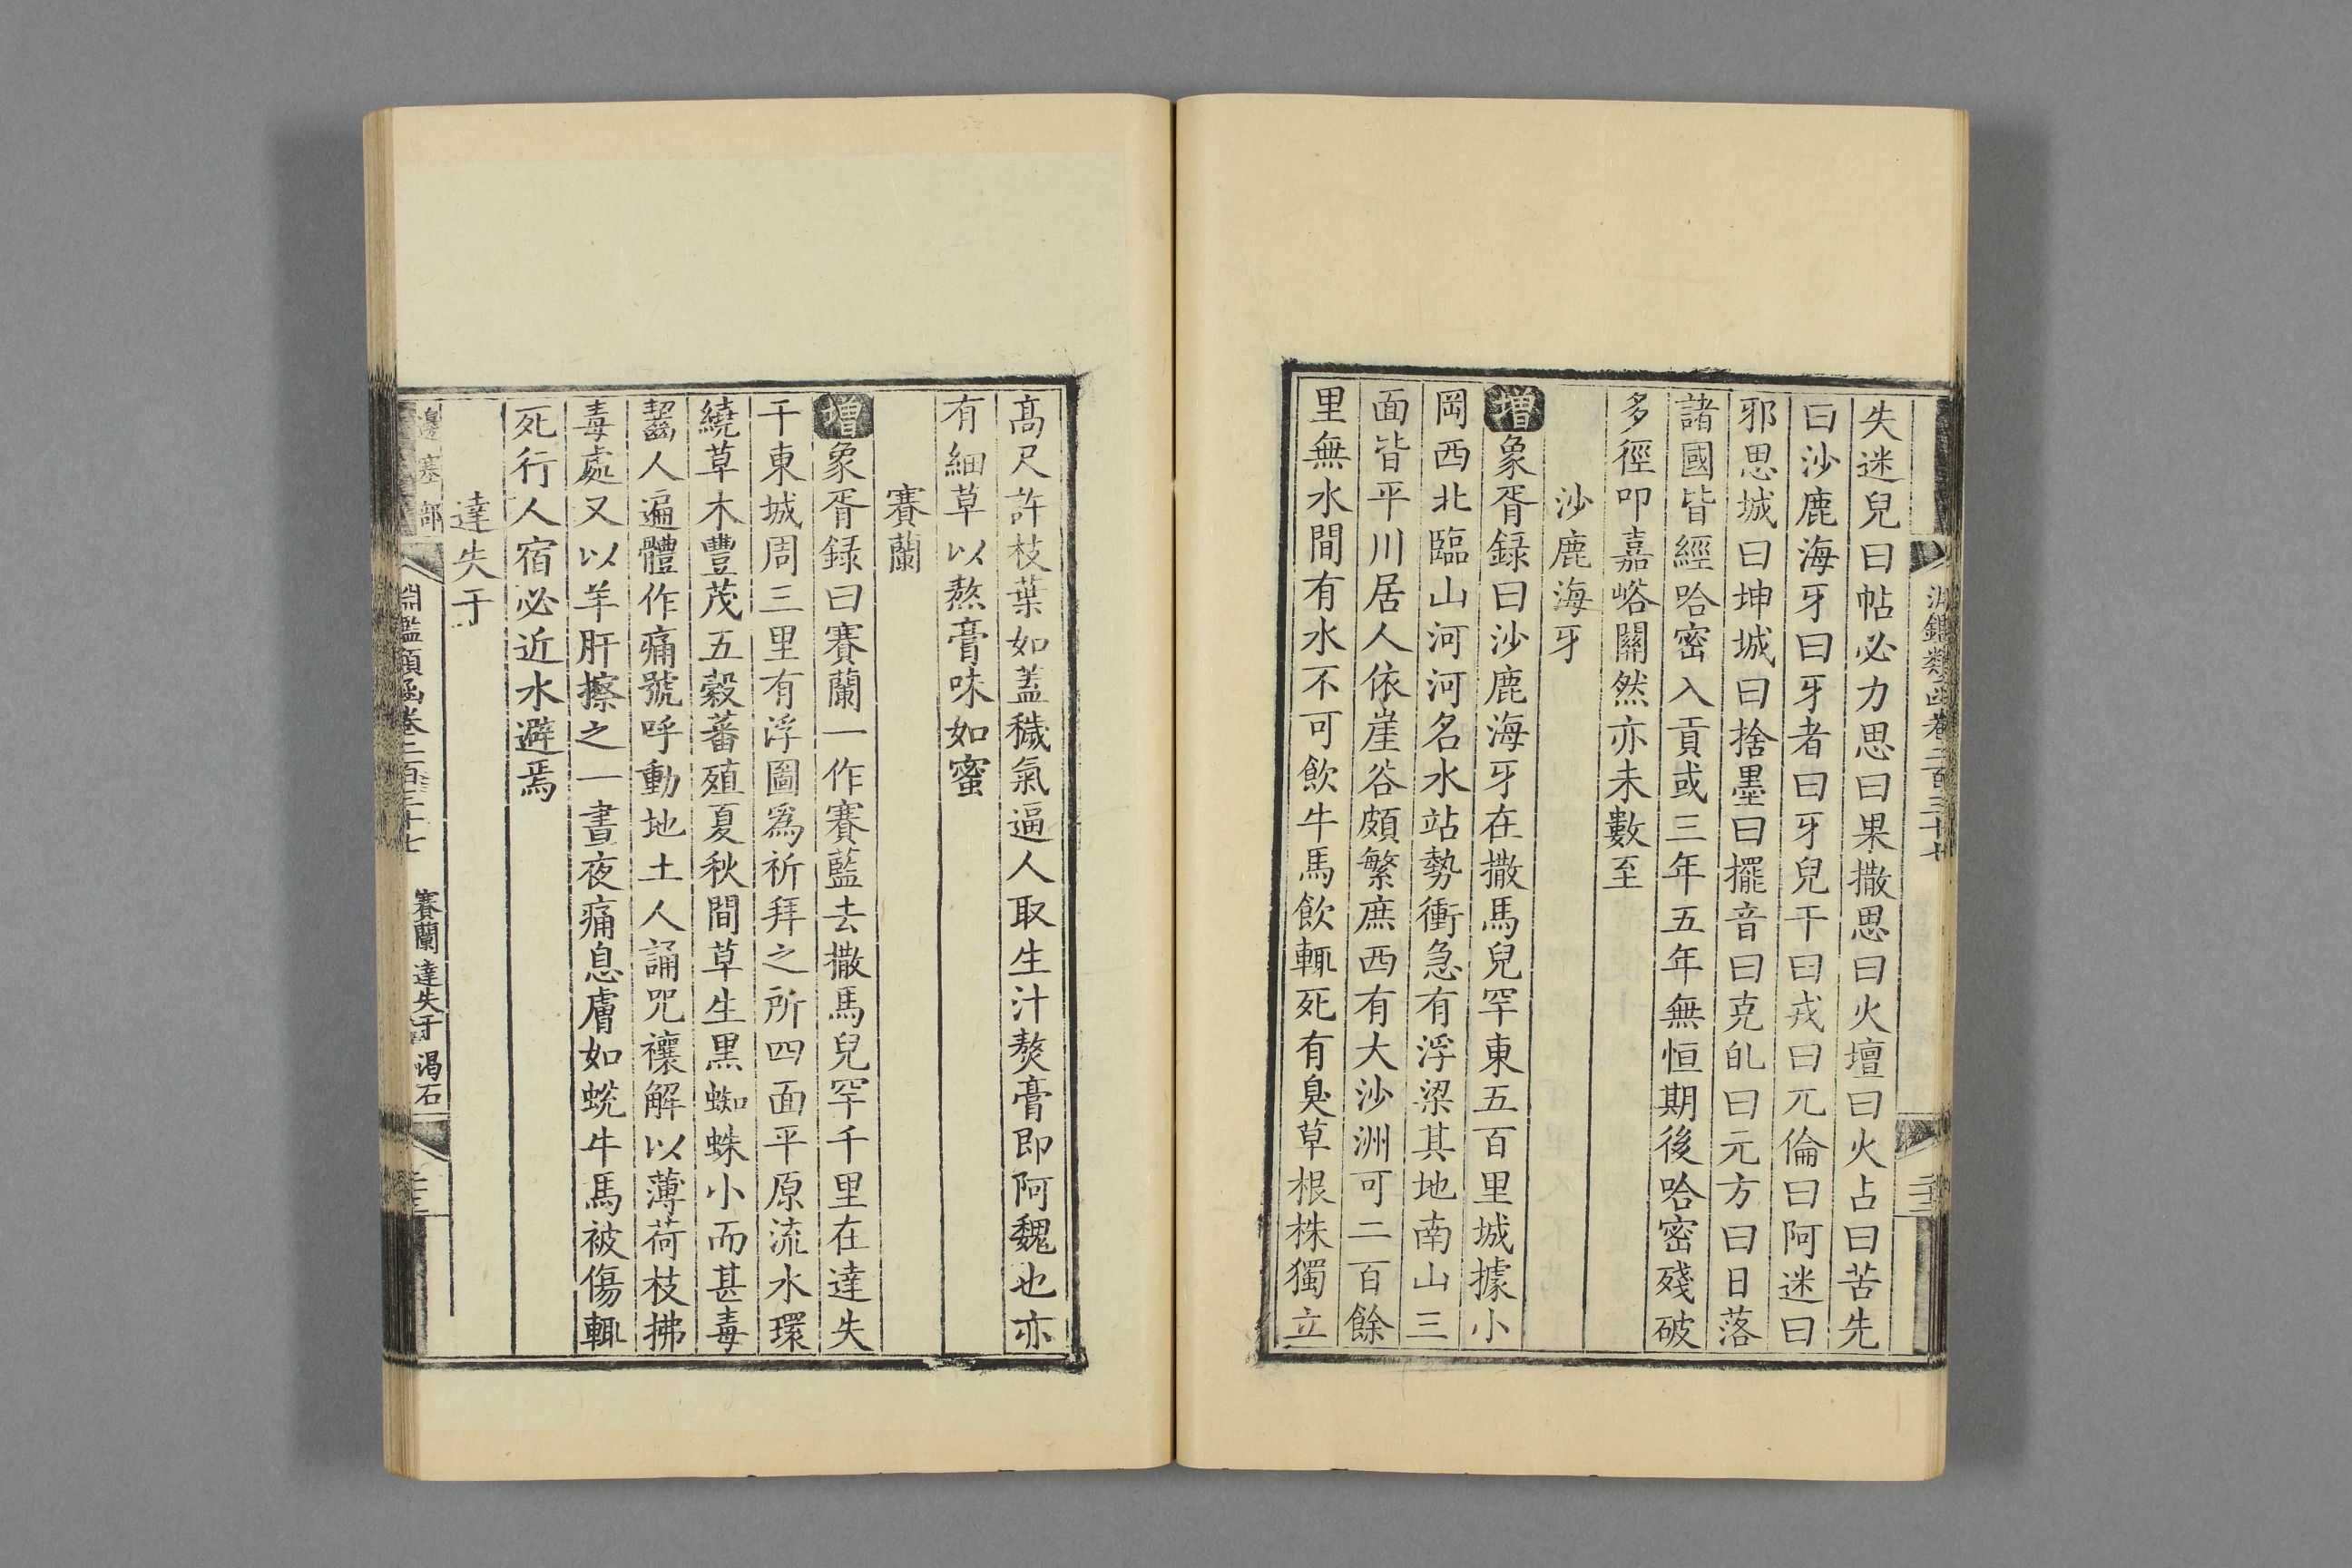 失迷兒曰帖必力思曰果撒思曰火壇曰火占曰苦先
曰沙鹿海牙曰牙者曰牙兒干曰戎曰兀倫曰阿迷曰
邪思城曰坤城曰捨墨曰擺音曰克癿曰元方曰日落
諸國皆經哈密入貢或三年五年無恒期後哈密殘破
多徑叩嘉峪關然亦未數至
沙鹿海牙
增象胥録曰沙鹿海牙在撒馬兒罕東五百里城據小
岡西北臨山河河名水站勢衝急有浮梁其地南山三
面皆平川居人依崖谷頗繁庶西有大沙洲可二百餘
里無水間有水不可飲牛馬飲輒死有臭草根株獨立
高尺許枝葉如蓋穢氣逼人取生汁熬膏即阿魏也亦
有細草以熬膏味如蜜
賽蘭
增象胥録曰賽蘭一作賽藍去撒馬兒罕千里在達失
干東城周三里有浮圖爲祈拜之所四面平原流水環
繞草木豐茂五穀蕃殖夏秋間草生黑蜘蛛小而甚毒
齧人遍體作痛號呼動地土人誦咒禳解以薄荷枝拂
毒處又以羊肝擦之一晝夜痛息膚如蛻牛馬被傷輒
死行人宿必近水避焉
達失干
邊塞部 淵鑑類函卷二百三十七 賽蘭 達失干 渴石